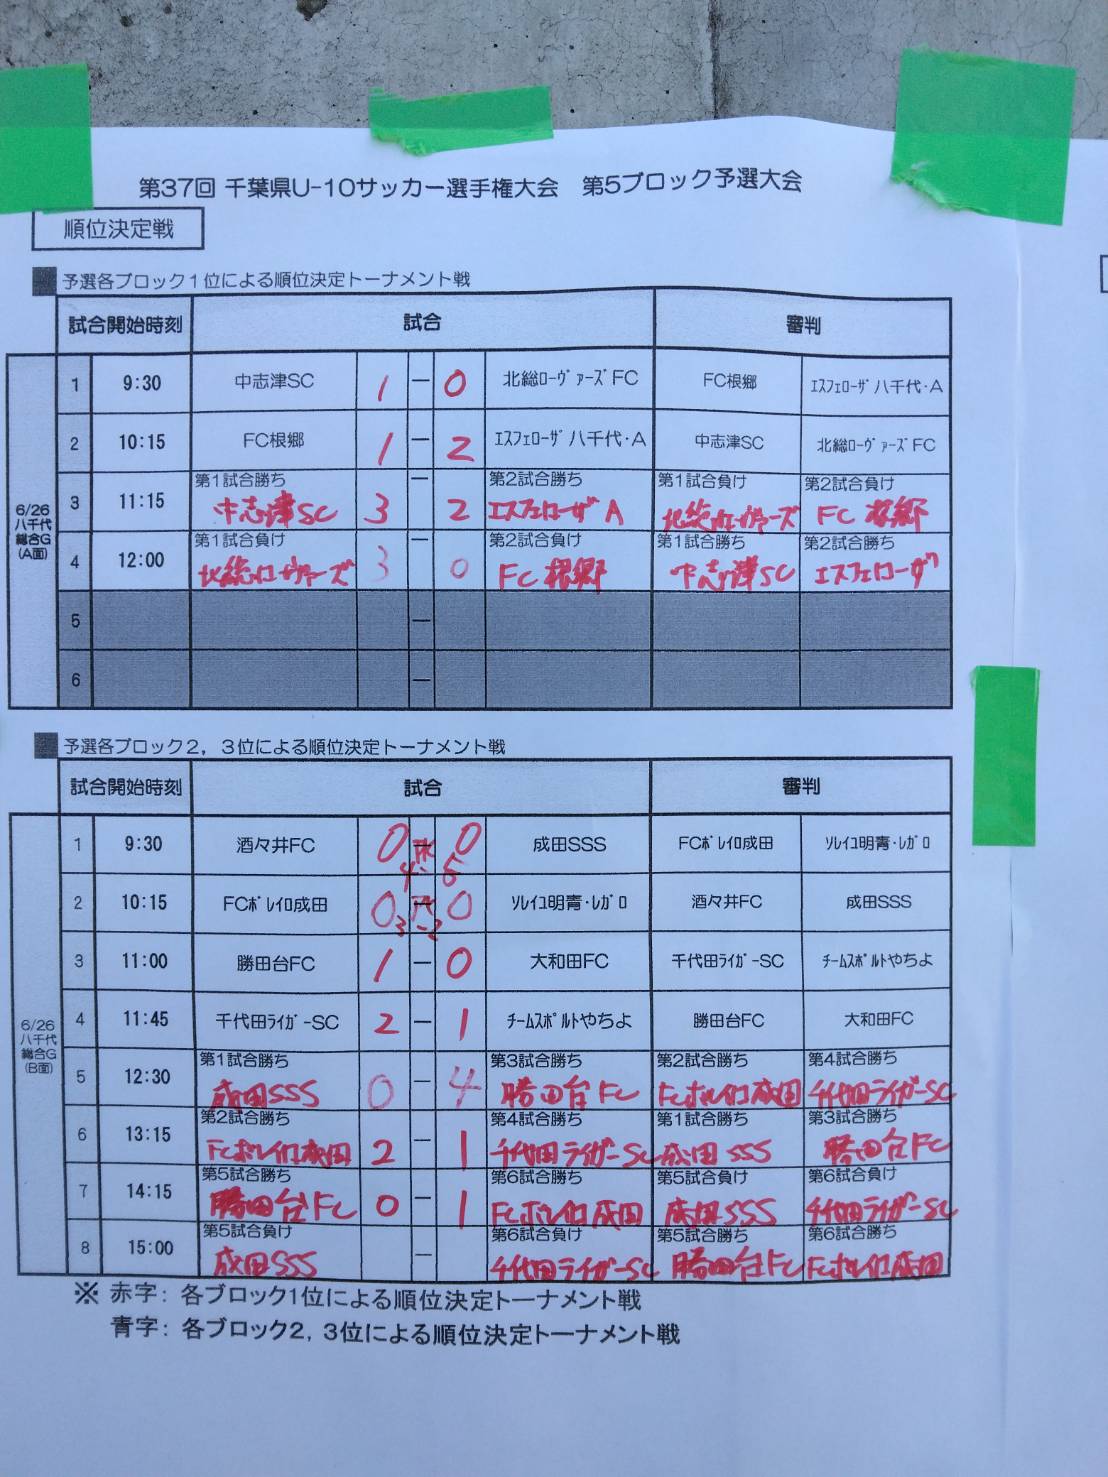 第37回 千葉県U-10サッカー選手権大会　第5ブロック予選大会
順位決定戦
■ 予選各ブロック1位による順位決定トーナメント戦
試合開始時刻 試合 審判
6/26 八千代総合G (A面)
1 9:30 中志津SC 1 － 0 北総ﾛｰｳﾞｧｰｽﾞFC FC根郷 ｴｽﾌｪﾛｰｻﾞ八千代・A
2 10:15 FC根郷 1 － 2 ｴｽﾌｪﾛｰｻﾞ八千代・A 中志津SC 北総ﾛｰｳﾞｧｰｽﾞFC
第1試合勝ち 第2試合勝ち 第1試合負け 第2試合負け
3 11:15 中志津SC 3 － 2 エスフェローザA 北総ローヴァーズ FC根郷
第1試合負け 第2試合負け 第1試合勝ち 第2試合勝ち
4 12:00 北総ローヴァーズ 3 － 0 FC根郷 中志津SC エスフェローザ
5 －
6 －
■ 予選各ブロック2，3位による順位決定トーナメント戦
試合開始時刻 試合 審判
6/26 八千代総合G (B面)
1 9:30 酒々井FC 0 － 0 成田SSS FCﾎﾞﾚｲﾛ成田 ｿﾚｲﾕ明青・ﾚｶﾞﾛ
4 - 5
2 10:15 FCﾎﾞﾚｲﾛ成田 0 － 0 ｿﾚｲﾕ明青・ﾚｶﾞﾛ 酒々井FC 成田SSS
3 - 2
3 11:00 勝田台FC 1 － 0 大和田FC 千代田ﾗｲｶﾞｰSC ﾁｰﾑｽﾎﾟﾙﾄやちよ
4 11:45 千代田ﾗｲｶﾞｰSC 2 － 1 ﾁｰﾑｽﾎﾟﾙﾄやちよ 勝田台FC 大和田FC
第1試合勝ち 第3試合勝ち 第2試合勝ち 第4試合勝ち
5 12:30 成田SSS 0 － 4 勝田台FC FCボレイロ成田 千代田ライガーSC
第2試合勝ち 第4試合勝ち 第1試合勝ち 第3試合勝ち
6 13:15 FCボレイロ成田 2 － 1 千代田ライガーSC 成田SSS 勝田台FC
第5試合勝ち 第6試合勝ち 第5試合負け 第6試合負け
7 14:15 勝田台FC 0 － 1 FCボレイロ成田 成田SSS 千代田ライガーSC
第5試合負け 第6試合負け 第5試合勝ち 第6試合勝ち
8 15:00 成田SSS － 千代田ライガーSC 勝田台FC FCボレイロ成田
※ 赤字：各ブロック1位による順位決定トーナメント戦
青字：各ブロック2，3位による順位決定トーナメント戦